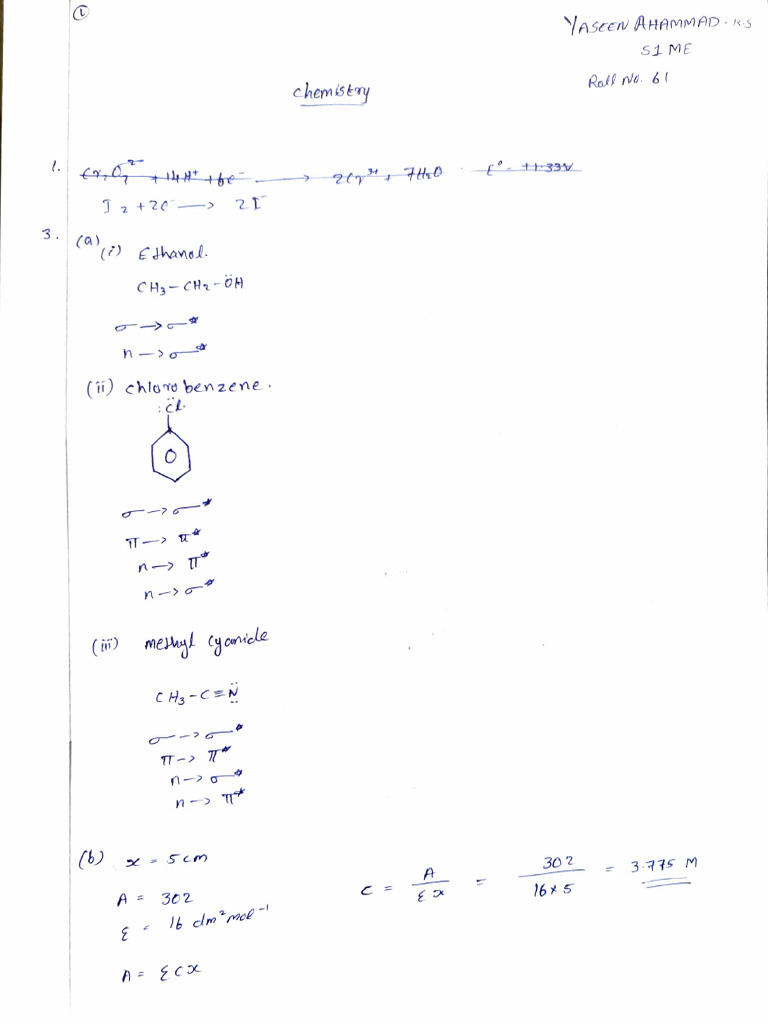 1
YASEEN AHAMMAD. K.S
S1 ME
Roll No. 61
Chemistry
1. Cr₂O₇²⁻ + 14H⁺ + 6e⁻ ⟶ 2Cr³⁺ + 7H₂O E° = +1.33V
I₂ + 2e⁻ ⟶ 2I⁻
3. (a)
(i) Ethanol.
CH₃ – CH₂ – ÖH
σ → σ*
n → σ*
(ii) chlorobenzene.
:C̈l.
σ → σ*
π → π*
n → π*
n → σ*
(iii) methyl cyanide
CH₃ – C ≡ N̈
σ → σ*
π → π*
n → σ*
n → π*
(b) x = 5 cm
A = 302
ε = 16 dm² mol⁻¹
A = εcx
C = A / εx = 302 / 16 × 5 = 3.775 M